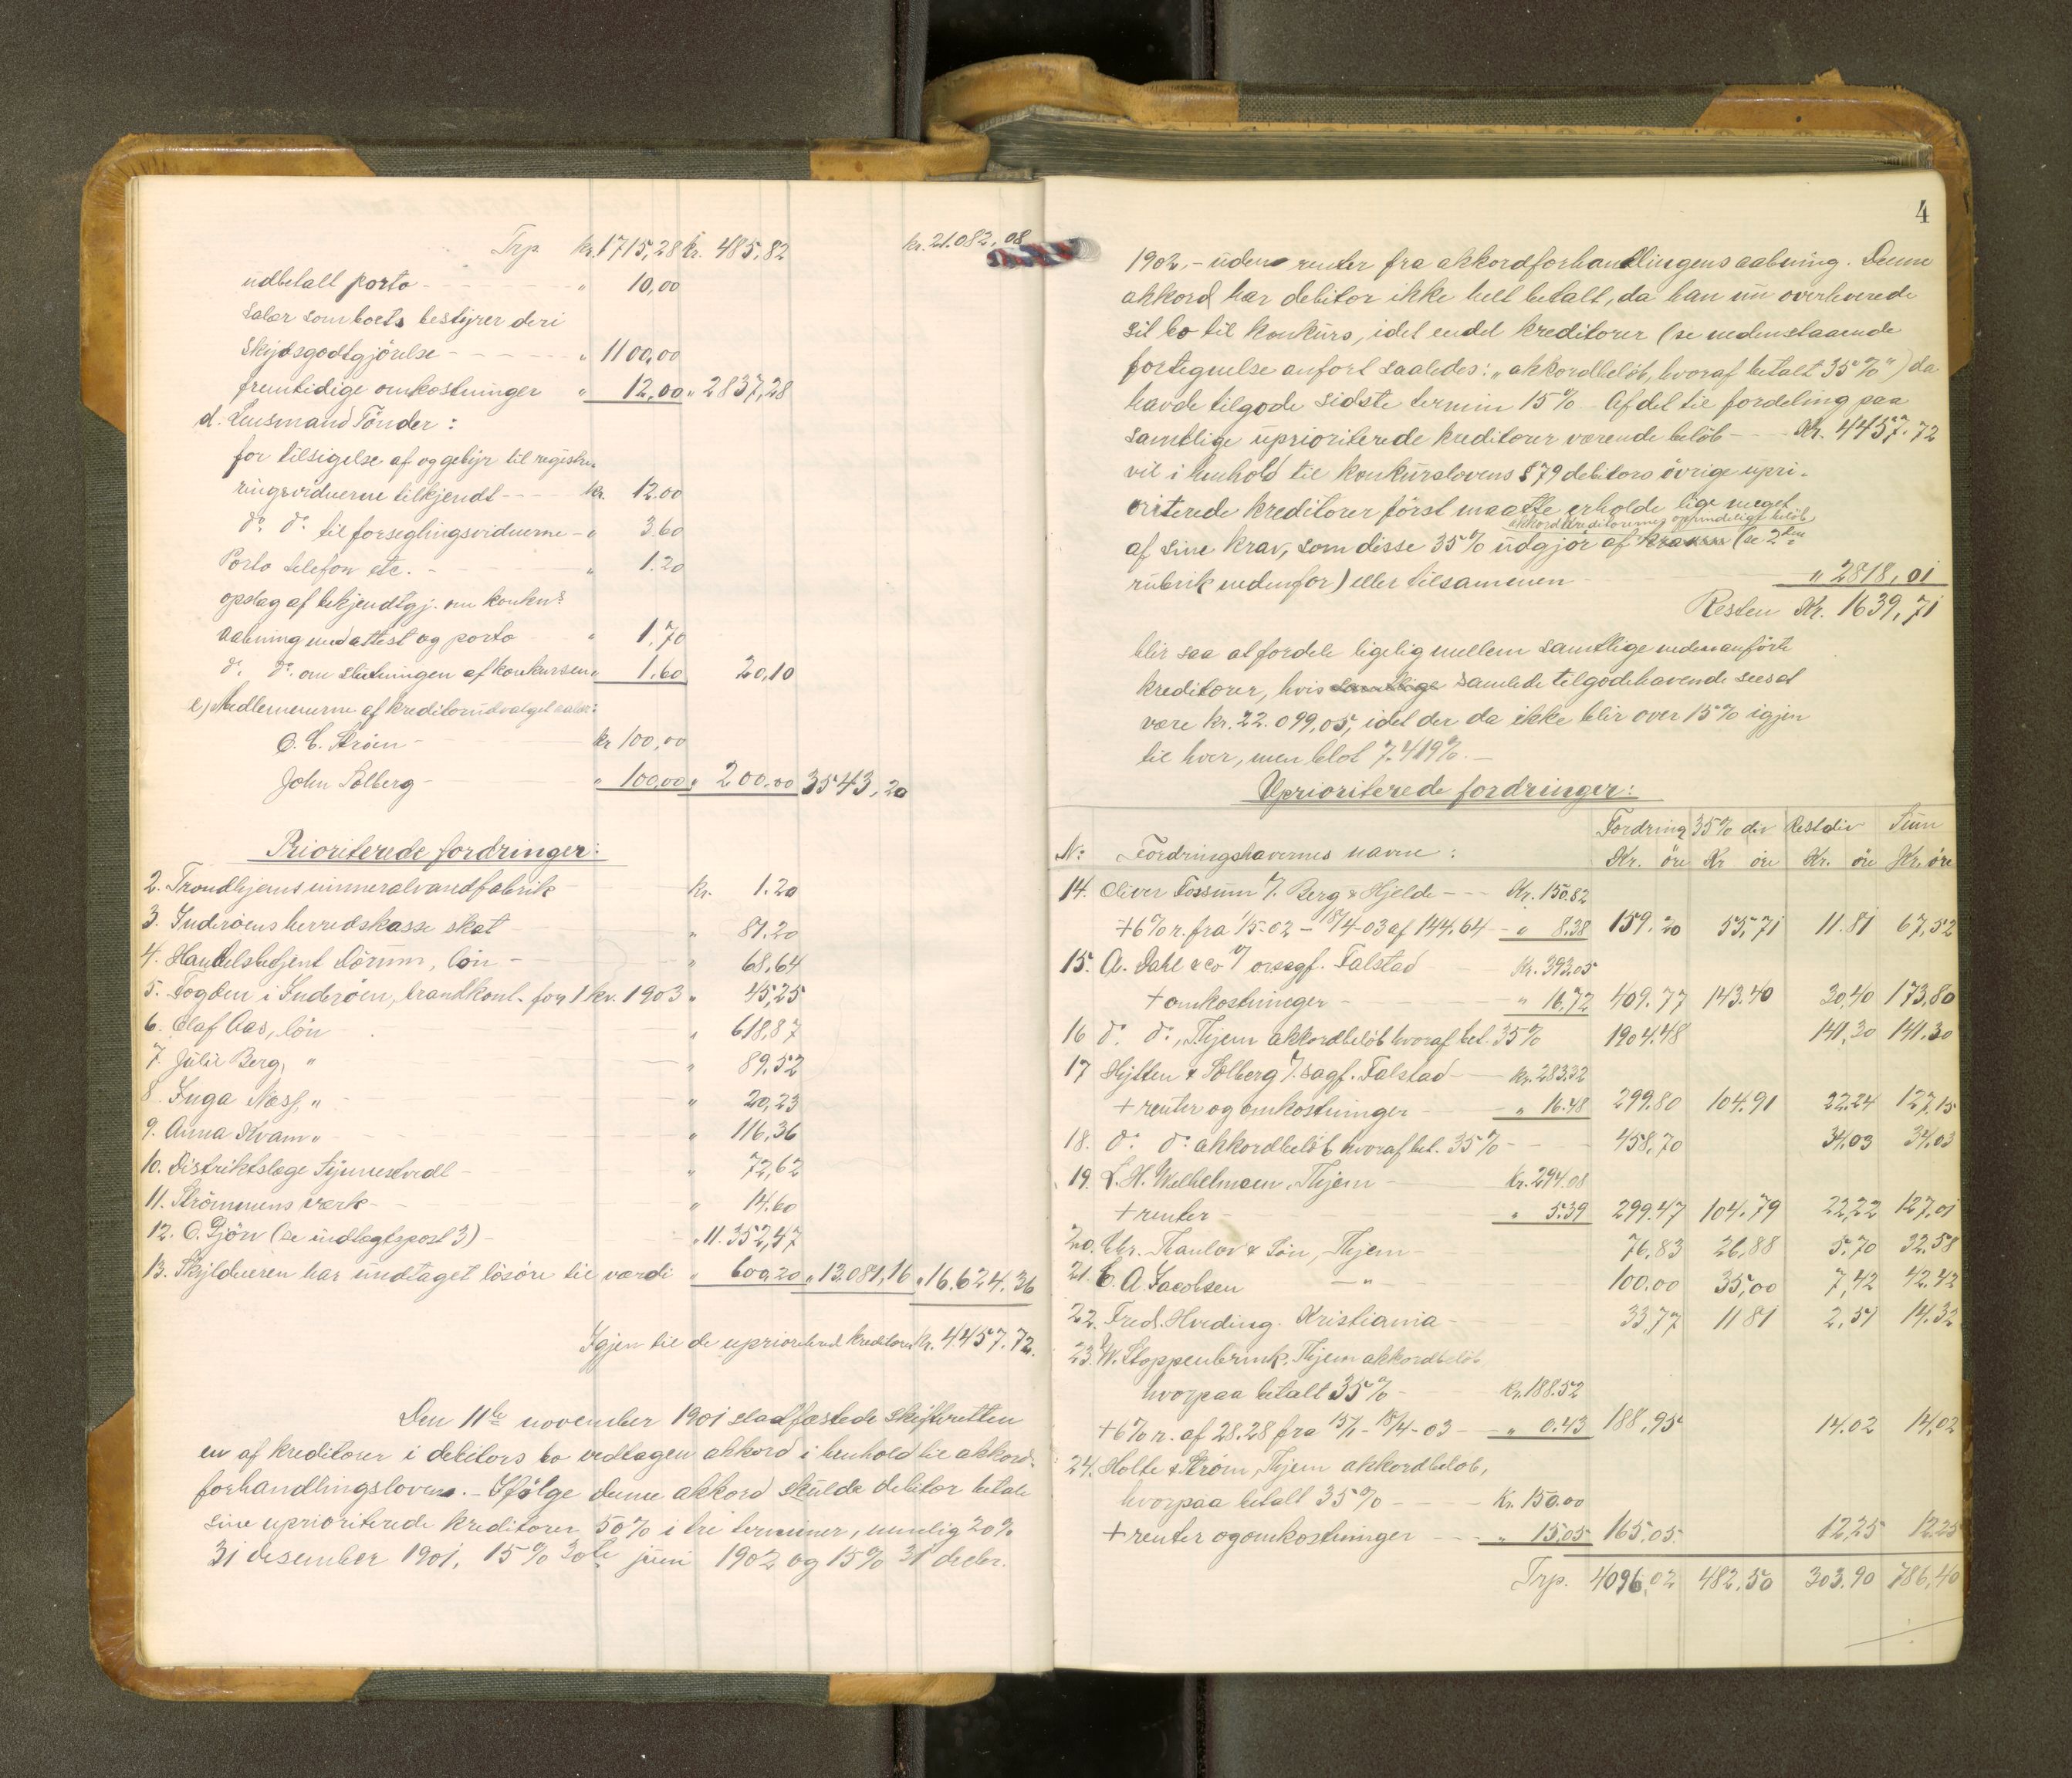 Trp kr. 1715,28 kr. 485,82 kr. 21.082,08
udbetalt porto - - - " 10,00
Salær som boets bestyrer deri
skydsgodtgjörelse - - - - " 1100,00
fremtidige omkostninger " 12,00 " 2837,28
d. Lensmand Tönder:
for tilsigelse af og gebyr til registre-
ringsvidnerne tilkjendt - - - kr. 12.00
do. do. til forseglingsvidnerne - " 3.60
Porto telefon etc. - " 1.20
opslag af bekjendtgj. om konkurs
aabning med attest og porto " 1.70
do. do. om slutningen af konkursen " 1.60 20,10
e, Medlemmerne af kreditorudvalget salær:
O. C. Ström - kr 100,00
John Solberg - " 100,00 " 200,00 3543,20
Prioriterede fordringer:
2. Trondhjems minneralvandfabrik kr. 1.20
3. Inderöens herredskasse skat " 81.20
4. Handelsbetjent Dörum, lön - " 68,64
5. Fogden i Inderöen, brandkont. for 1 kv. 1903 " 45,25
6. Olaf Aas, lön " 618,87
7. Julie Berg, " " 89,52
8. Inga Næss, " " 20,23
9. Anna Kvam " " 116,36
10. Distriktslæge Synnestvedt - " 72,62
11. Strömmens værk - " 14.60
12. O. Gjörv (se indtægtspost 3) - " 11.352,47
13. Skyldneren har undtaget lösöre til værdi " 600,20 " 13.081,16 " 16.624.36
Igjen til de uprioriterede kreditorer kr. 4457.72.
Den 11te november 1901 stadfæstede skifteretten
en af kreditorer i debitors bo vedtagen akkord i henhold til akkord-
forhandlingsloven. - Ifölge denne akkord skulde debitor betale
sine uprioriterede kreditorer 50% i tre terminer, nemlig 20%
31 desember 1901, 15% 30te juni 1902 og 15% 31 decbr.
4
1902, - uden renter fra akkordforhandlingens aabning. Denne
akkord har debitor ikke helt betalt, da han nu overleverede
sit bo til konkurs, idet endel kreditorer (se nedenstaaende
fortegnelse anfort saaledes: "akkordbelöb, hvoraf betalt 35%") da
havde tilgode sidste termin 15% Af det til fordeling paa
samtlige uprioriterede kreditorer værende belöb - - - Kr. 4457.72
vil i henhold til konkurslovens § 79 debitors övrige upri-
oriterede kreditorer först maatte erholde lige meget
akkordkreditorernes oprindelige belöb
af sine krav, som disse 35% udgjör af kraven (se 2den
rubrik nedenfor) eller tilsammen - " 2818,01
Resten Kr. 1639,71
blir saa at fordele ligelig mellem samtlige nedenanförte
kreditorer, hvis samtlige samlede tilgodehavende sees at
være kr. 22.099,05, idet der da ikke blir over 15% igjen
til hver, men blot 7.419%. -
Uprioriterede fordringer:
Fordring 35% div Restdiv Sum
No: Fordringshavernes navne: Kr. öre Kr öre Kr. öre Kr. öre
14. Oliver Fossum v/ Berg & Hjelde - - - Kr. 150.82
+ 6% r. fra 1/5-02 - 18/4-03 af 144.64 - " 8.38 159.20 55,71 11.81 67,52
15. A. Dahl & co v/ orsagf. Falstad Kr. 393.05
+ omkostninger - - " 16.72 409.77 143.40 30,40 173,80
16 do. do., Thjem akkordbelöb hvoraf bet. 35% 1904.48 141,30 141.30
17 Hytten & Solberg v/. sagf. Falstad - Kr. 283.32
+ renter og omkostninger - " 16.48 299.80 104.91 22.24 127,15
18. do. do. akkordbelöb hvoraf bet. 35% - - 458,70 34.03 34.03
19. L. H. Wilhelmsen, Thjem - Kr. 294.08
+ renter - " 5.39 299.47 104.79 22,22 127,01
20. Chr. Thaulow & Sön, Thjem - 76,83 26,88 5.70 32.58
21. C. A. Jacobsen - " - 100.00 35,00 7,42 42.42
22. Fred. Hveding. Kristiania - 33,77 11 81 2,51 14.32
23. W. Stoppenbrink, Thjem akkordbelöb
hvorpaa betalt 35% - Kr. 188.52
+ 6% r. af 28.28 fra 15/1 - 18/4-03 - " 0.43 188,95 14.02 14,02
24. Holte & Ström, Thjem akkordbelöb,
hvorpaa betalt 35% - - - Kr. 150.00
+ renter og omkostninger - - - " 15,05 165,05 12,25 12.25
Trp. 4096,02 482,50 303,90 786,40